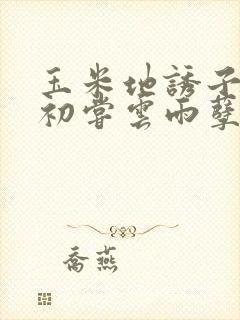 玉米地誘子
初嘗雲雨孽
喬燕